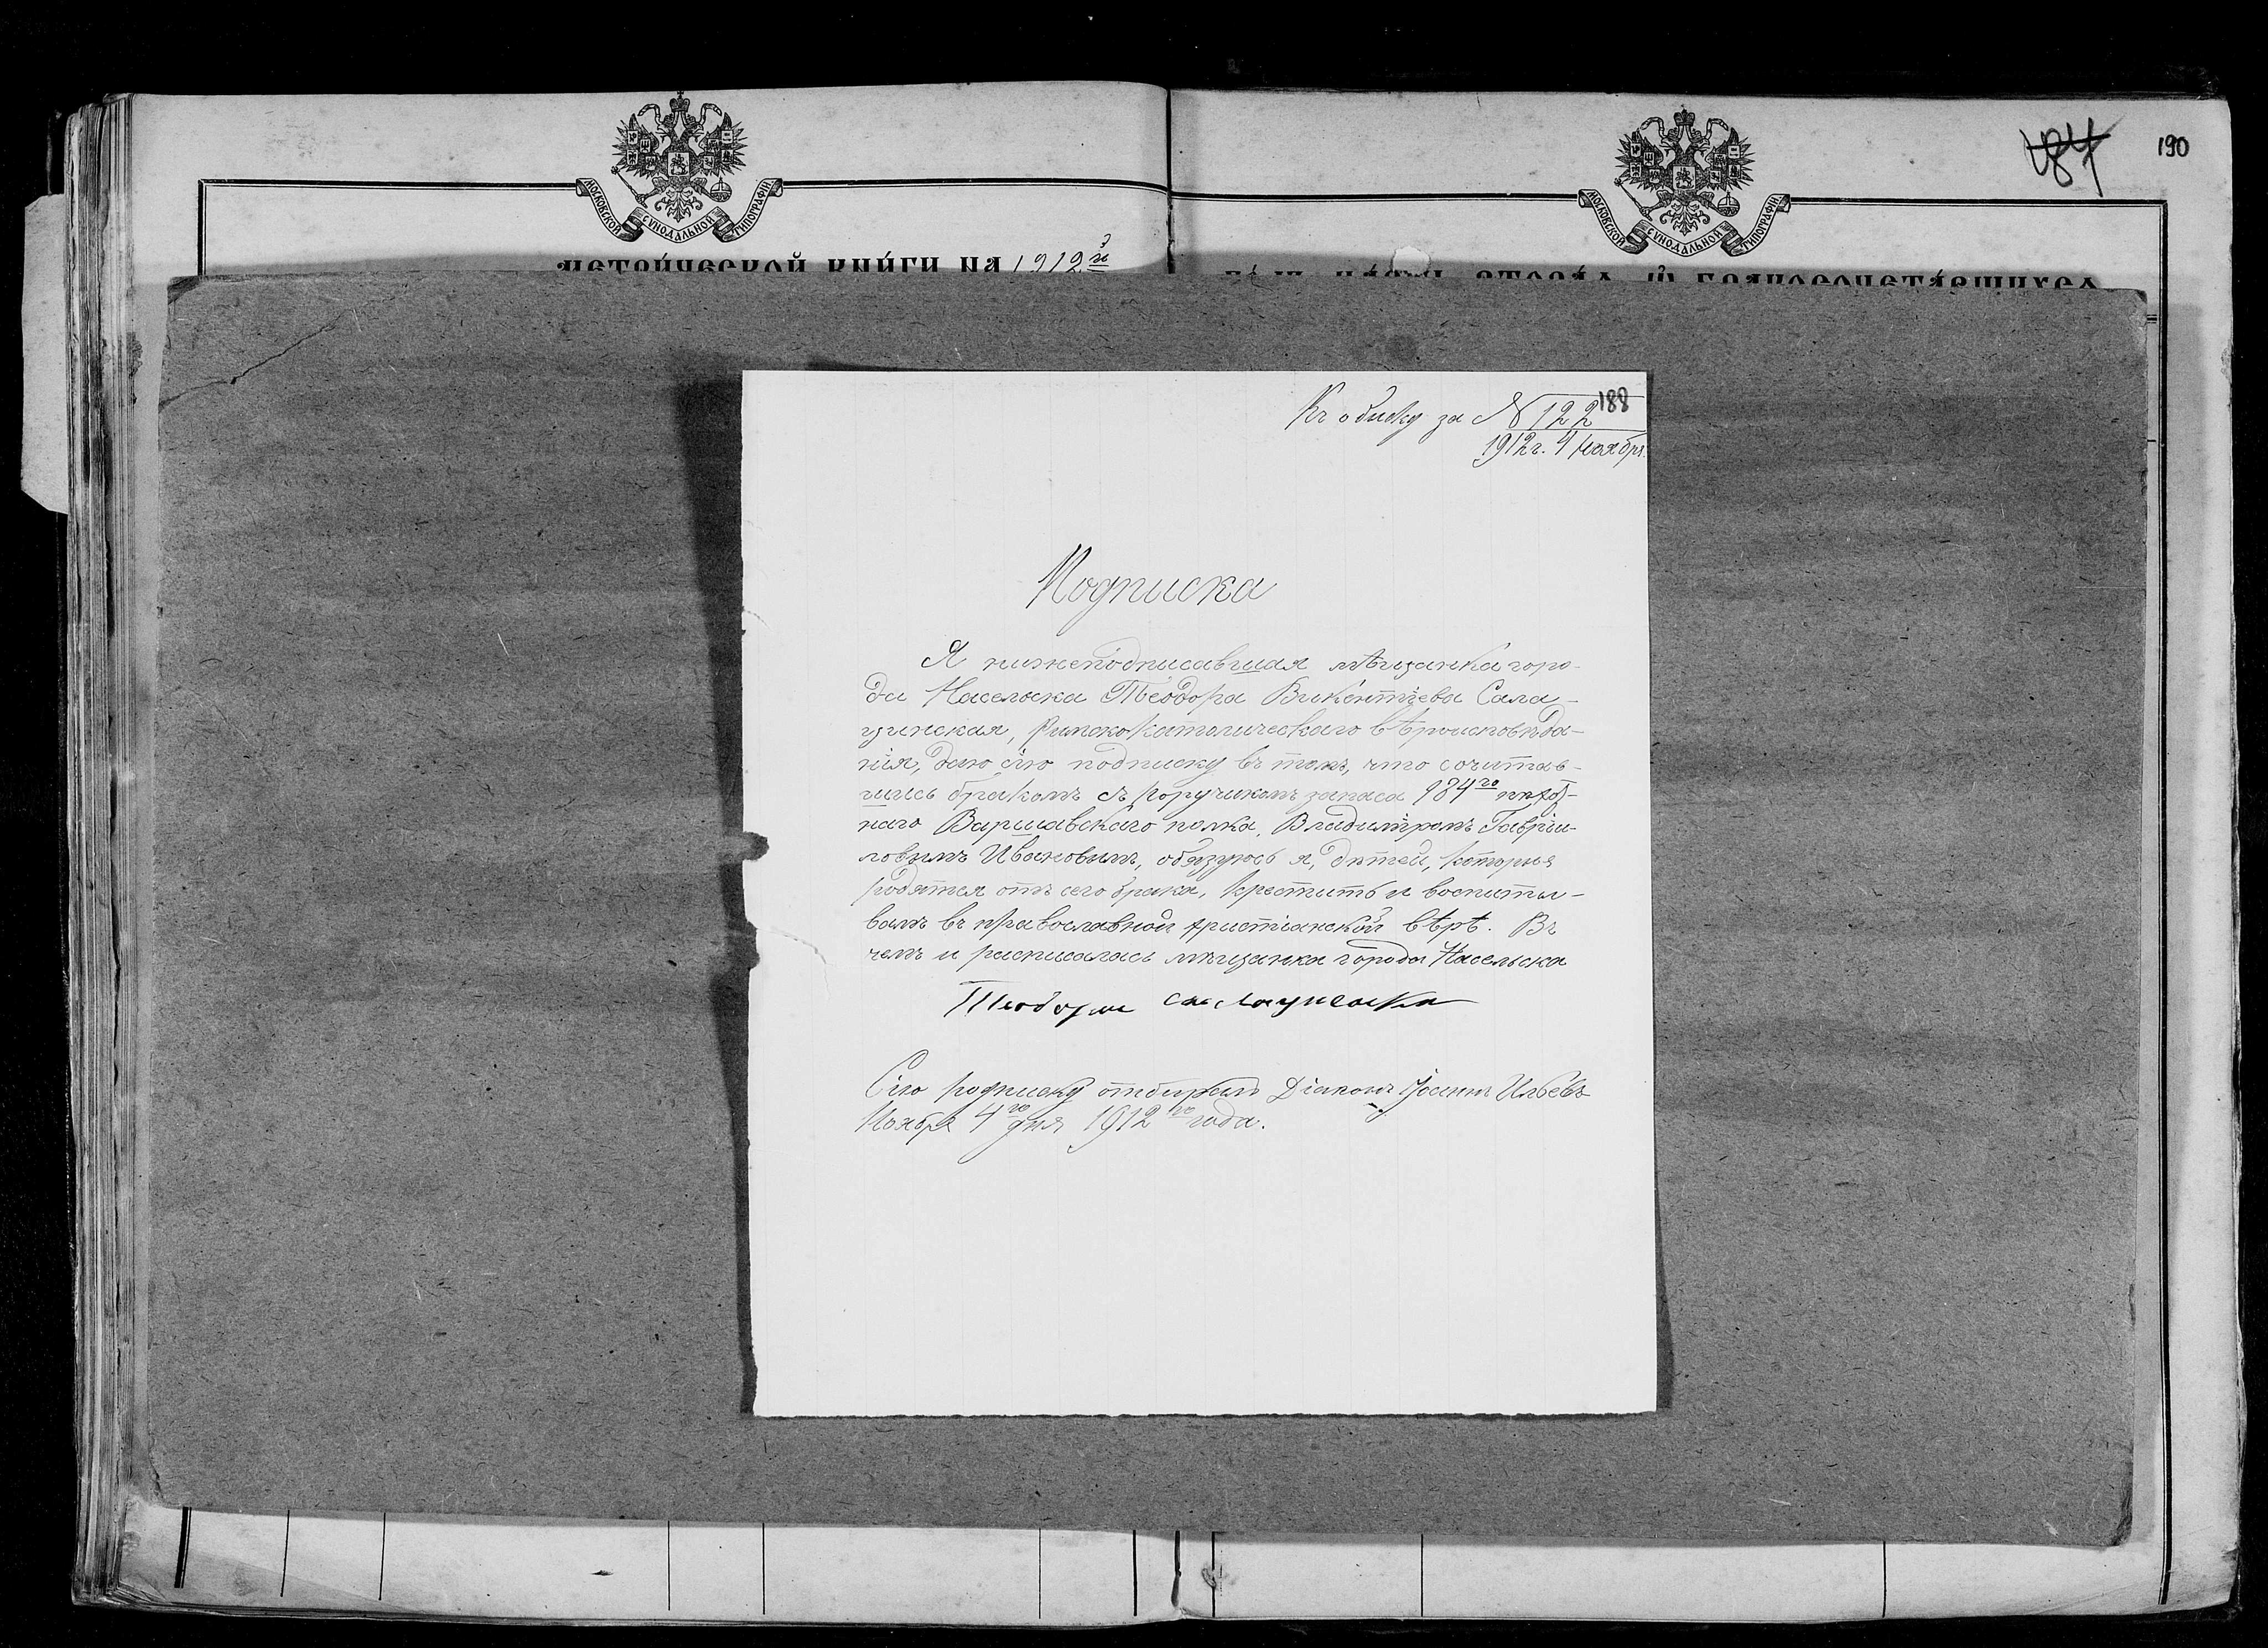 МОСКОВСКОЙ СУНОДАЛЬНОЙ ТИПОГРАФІИ
метри́ческой кни́ги на 1912й
МОСКОВСКОЙ СУНОДАЛЬНОЙ ТИПОГРАФІИ
190
188
Къ обыску за N 122
1912 г. 4 ноября.
Подписка
Я нижеподписавшая мѣщанка горо-
да Насельска Теодора Викентіева Сала
цинская, Римско Католическаго вѣроисповѣда-
нія, даю сію подписку въ томъ, что сочитав-
шись бракомъ съ поручикомъ запаса 184го пѣхот-
наго Варшавскаго полка, Владиміромъ Гавріи-
ловымъ Ивановымъ, обязуюсь я, дѣтей, которые
родятся отъ сего брака, крестить и воспиты-
вать въ православной христіанской вѣрѣ. Въ
чемъ и расписалась мѣщанка города Насельска
Теодора
Сію подписку отбиралъ Діаконъ Іоаннъ Ильевъ
Ноября 4го дня 1912го года.